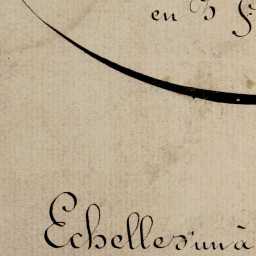 en
Echelles un à